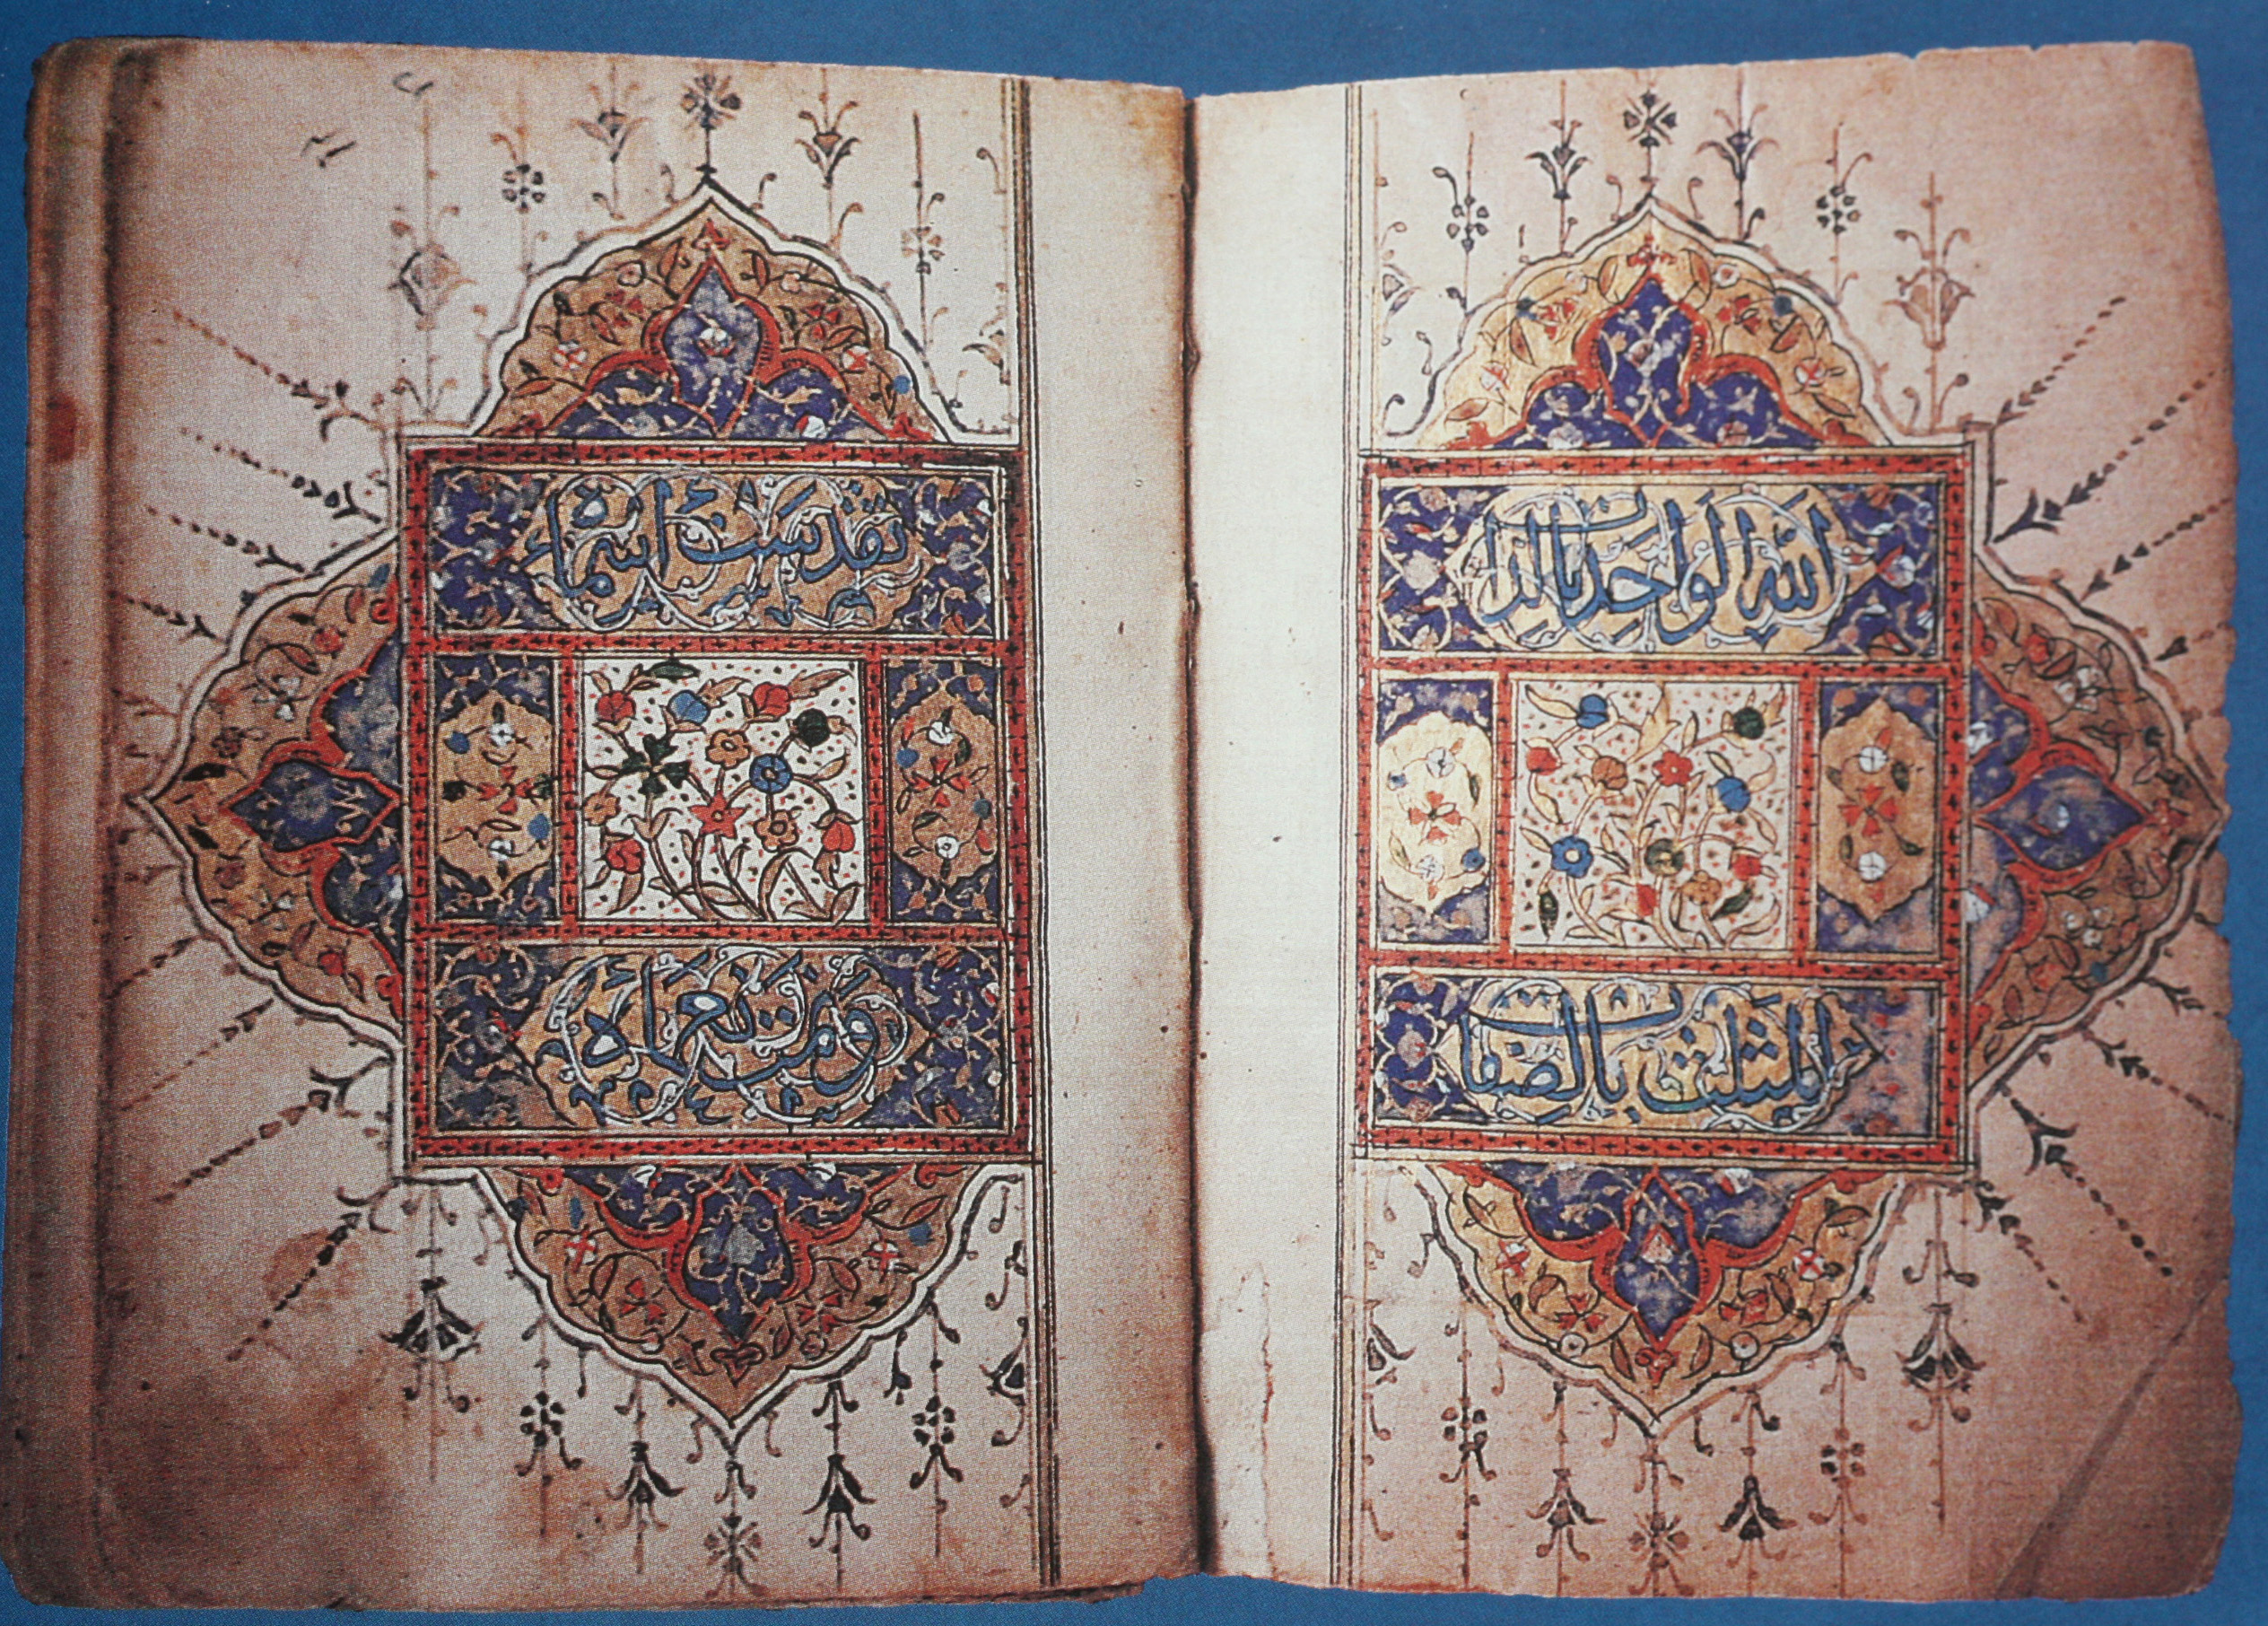 الله الواحد بالذات
المثلث بالصفات
تقدست اسماءه
نعماءه